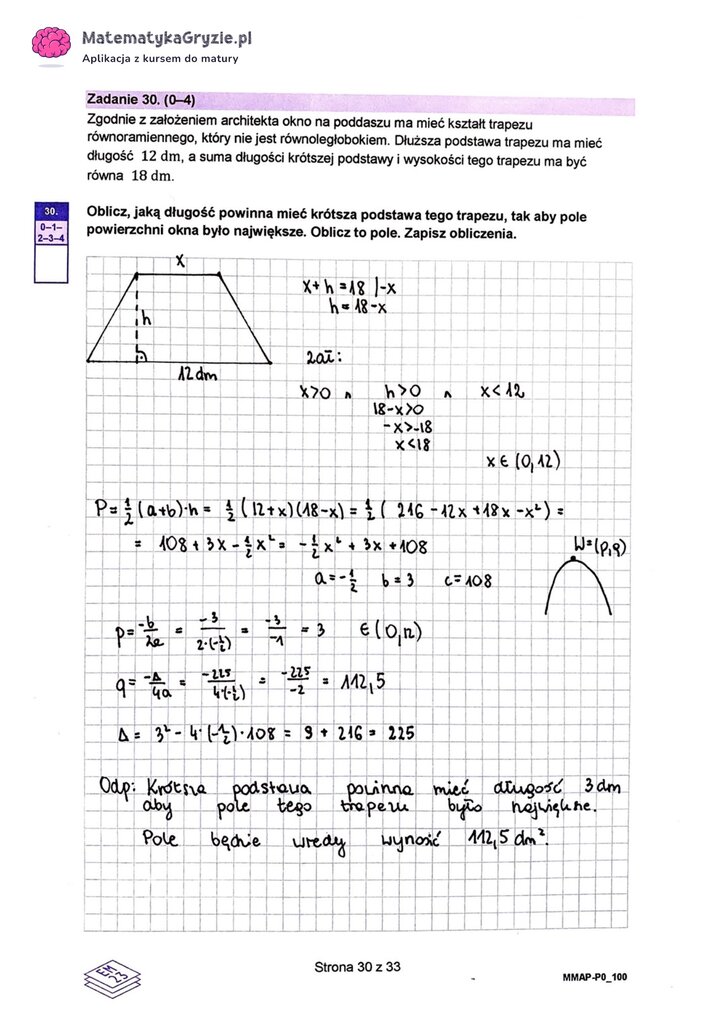 MatematykaGryzie.pl
Aplikacja z kursem do matury
Zadanie 30. (0–4)
Zgodnie z założeniem architekta okno na poddaszu ma mieć kształt trapezu
równoramiennego, który nie jest równoległobokiem. Dłuższa podstawa trapezu ma mieć
długość 12 dm, a suma długości krótszej podstawy i wysokości tego trapezu ma być
równa 18 dm.
30.
0–1–
2–3–4
Oblicz, jaką długość powinna mieć krótsza podstawa tego trapezu, tak aby pole
powierzchni okna było największe. Oblicz to pole. Zapisz obliczenia.
x
h
12 dm
x + h = 18 |-x
h = 18 - x
zał:
x>0 ∧ h>0 ∧ x<12
18-x>0
-x>-18
x<18
x ∈ (0,12)
P = 1/2 (a+b)·h = 1/2 (12+x)(18-x) = 1/2 ( 216 - 12x + 18x - x²) =
= 108 + 3x - 1/2 x² = -1/2 x² + 3x + 108
W=(p,q)
a = -1/2 b = 3 c = 108
p = -b/2a = -3/2·(-1/2) = -3/-1 = 3 ∈ (0,12)
q = -Δ/4a = -225/4·(-1/2) = -225/-2 = 112,5
Δ = 3² - 4·(-1/2)·108 = 9 + 216 = 225
Odp: Krótsza podstawa powinna mieć długość 3 dm
aby pole tego trapezu było największe.
Pole będzie wtedy wynosić 112,5 dm².
Strona 30 z 33
MMAP-P0_100